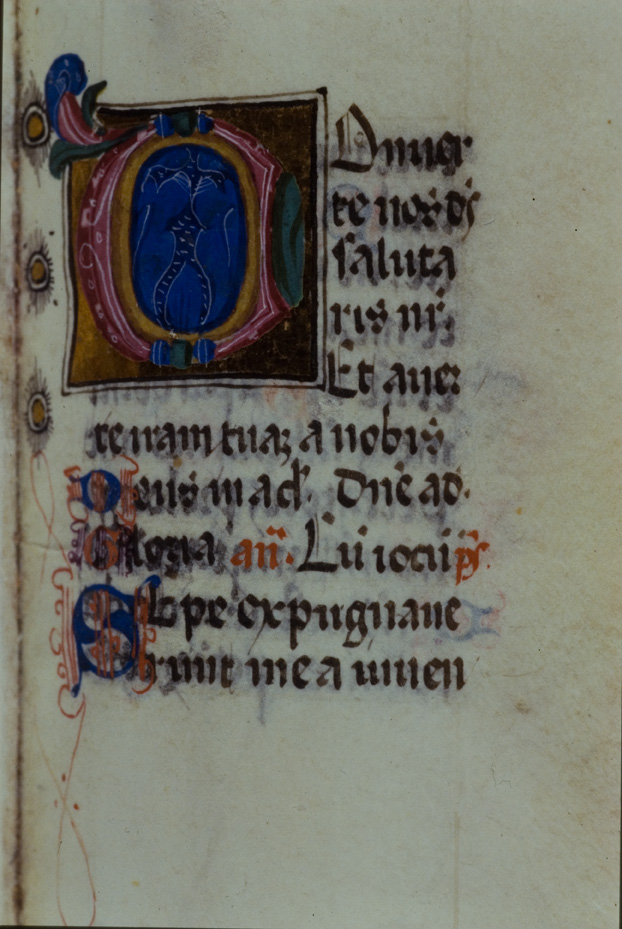 COnuer
te nos ds̄
saluta
ris nr̄.
Et auer
te iram tuaꝫ a nobis
Deus in ad̄. Dn̄e ad.
Gloria an̄. Cū iocū ps̄.
SEpe expugnaue
runt me a iuuen